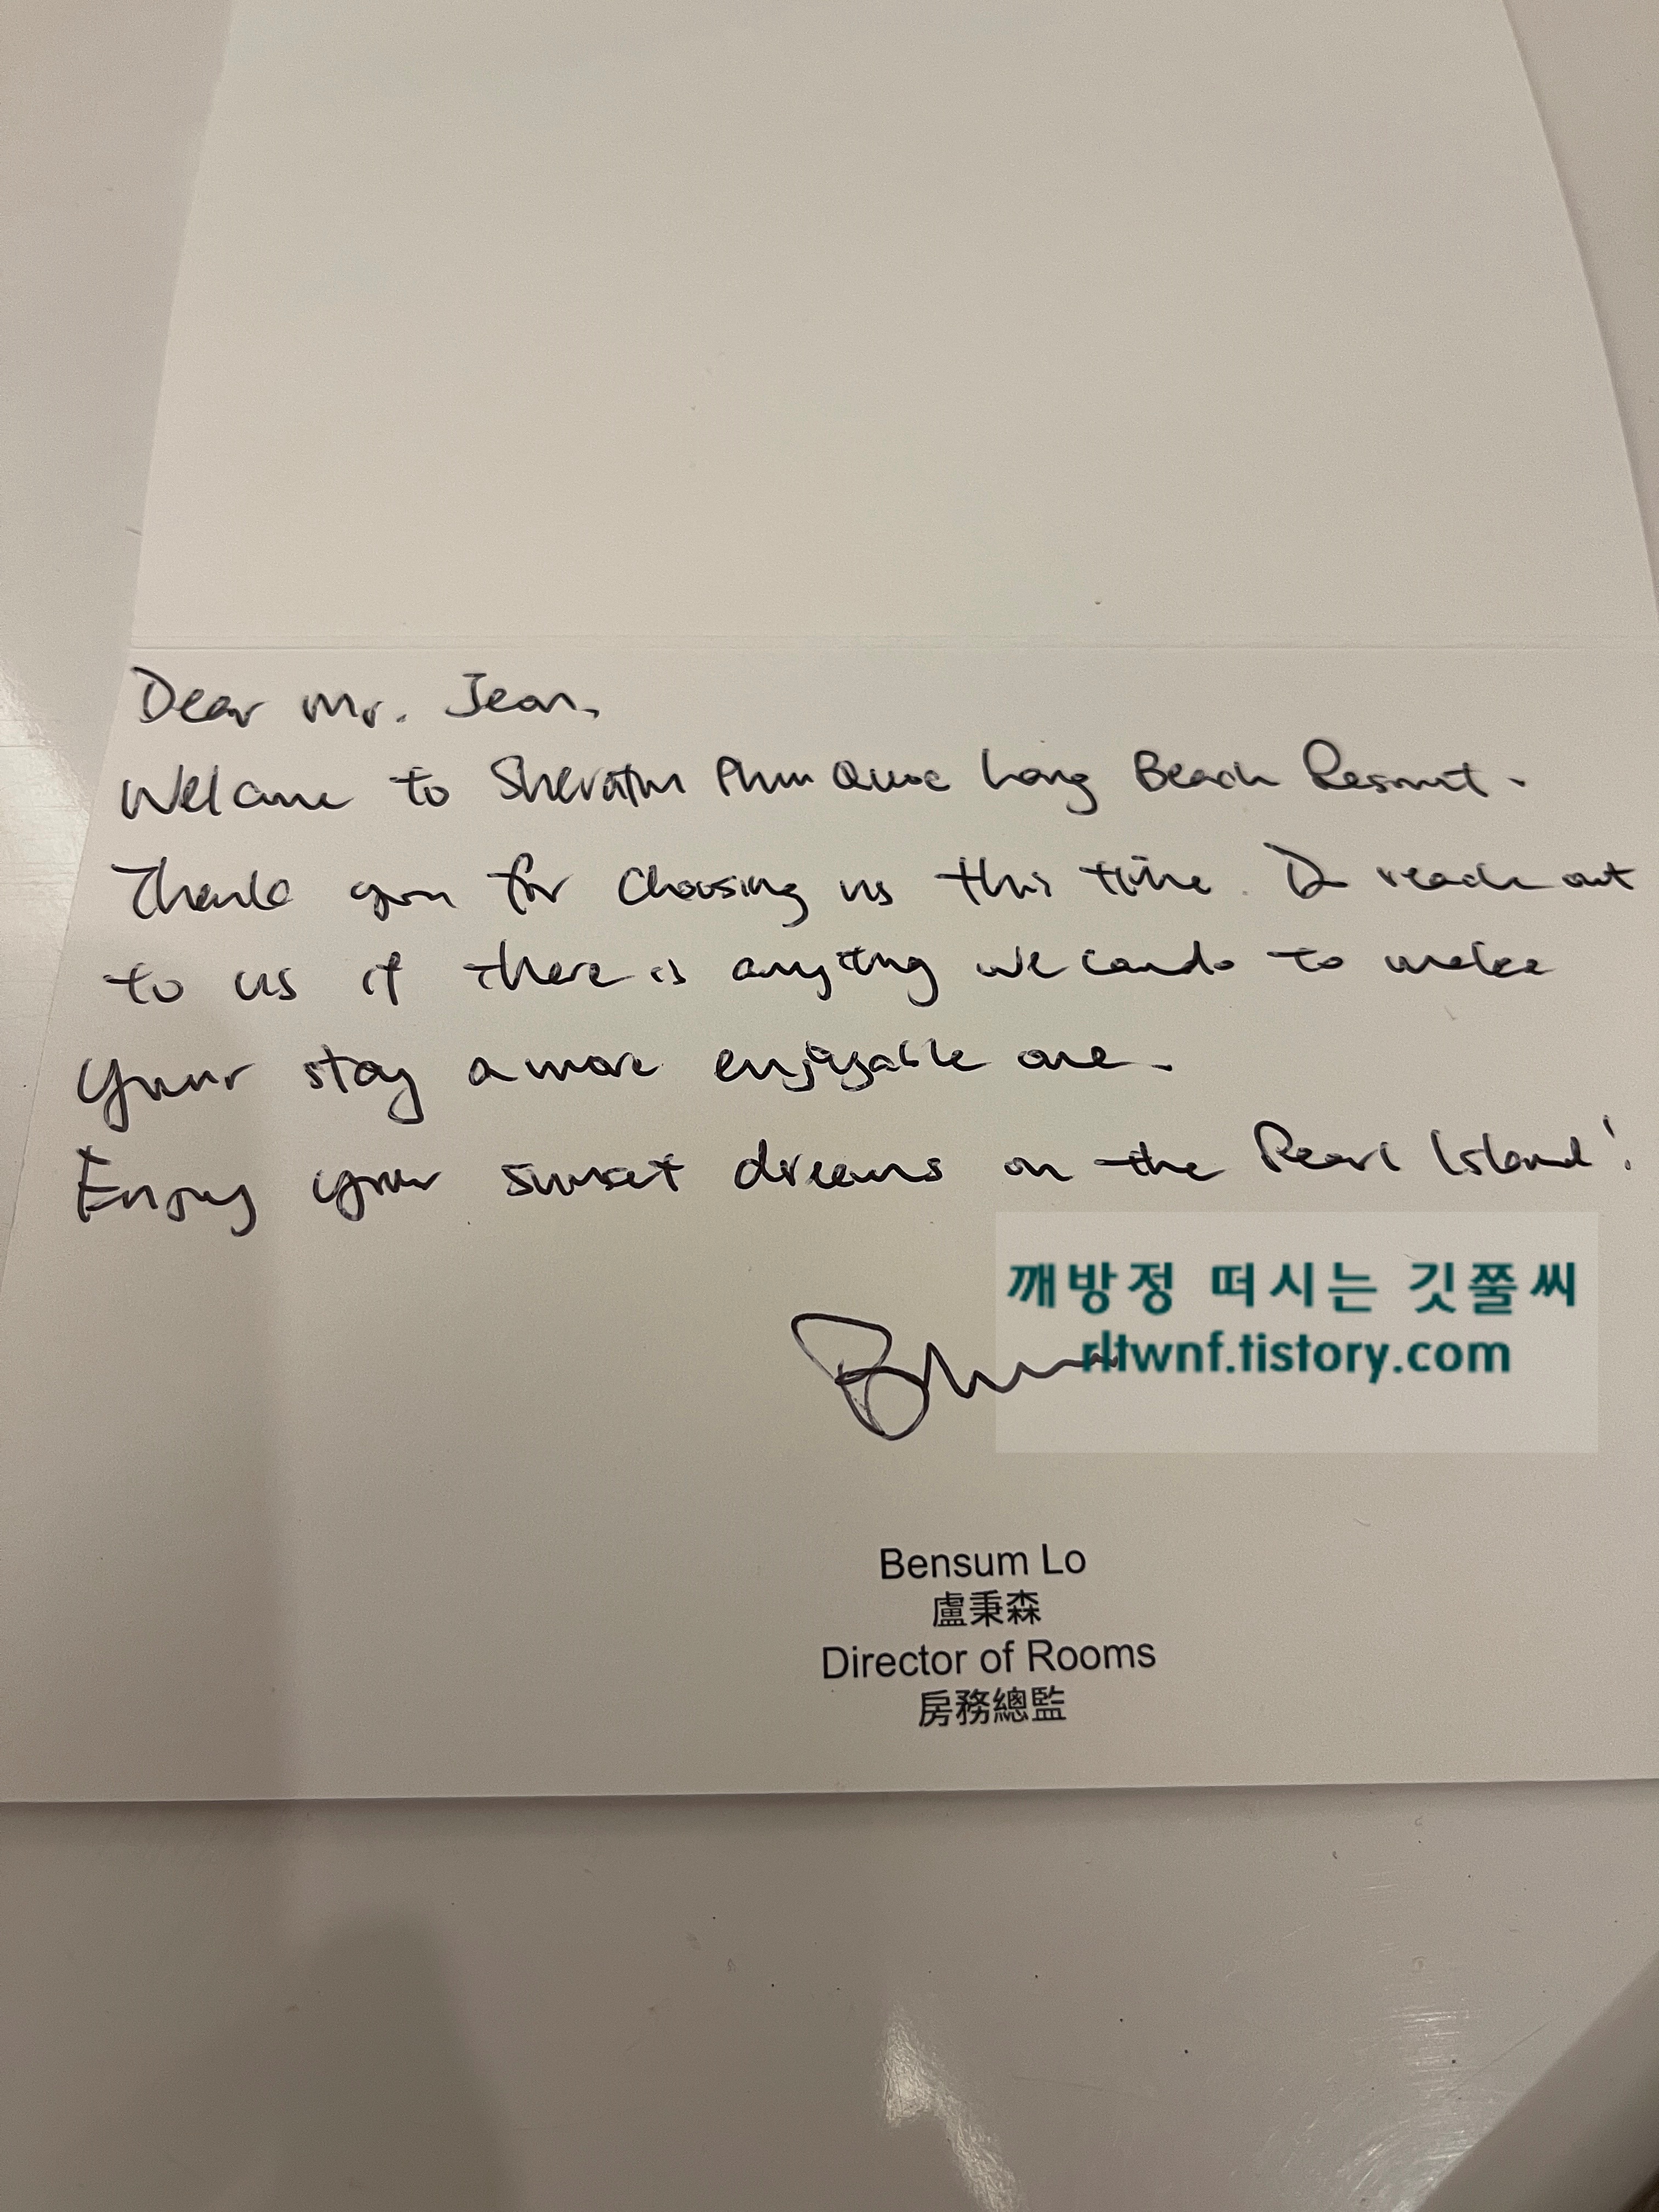 Dear Mr. Jeon,
Welcome to Sheraton Phu Quoc Long Beach Resort.
Thank you for choosing us this time. Do reach out
to us if there is anything we can do to make
your stay a more enjoyable one.
Enjoy your sunset dreams on the Pearl Island!
깨방정 떠시는 깃쭐씨
rltwnf.tistory.com
Bensum Lo
盧秉森
Director of Rooms
房務總監